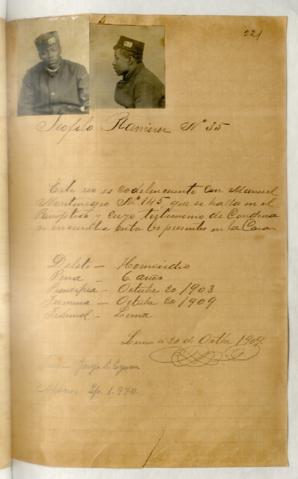 221
Teofilo Ramirez Nº 35
Este reo es codelincuente con Manuel
Montenegro Nº 145 que se halla en el
Panoptico y cuyo testimonio de Condena
se encuentra entre los presentes en la Casa
Delito – Homicidio
Pena – 6 años
Principia – Octubre 20/1903
Termina – Octubre 20/1909
Tribunal – Lima
Lima a 20 de Octbre 1909